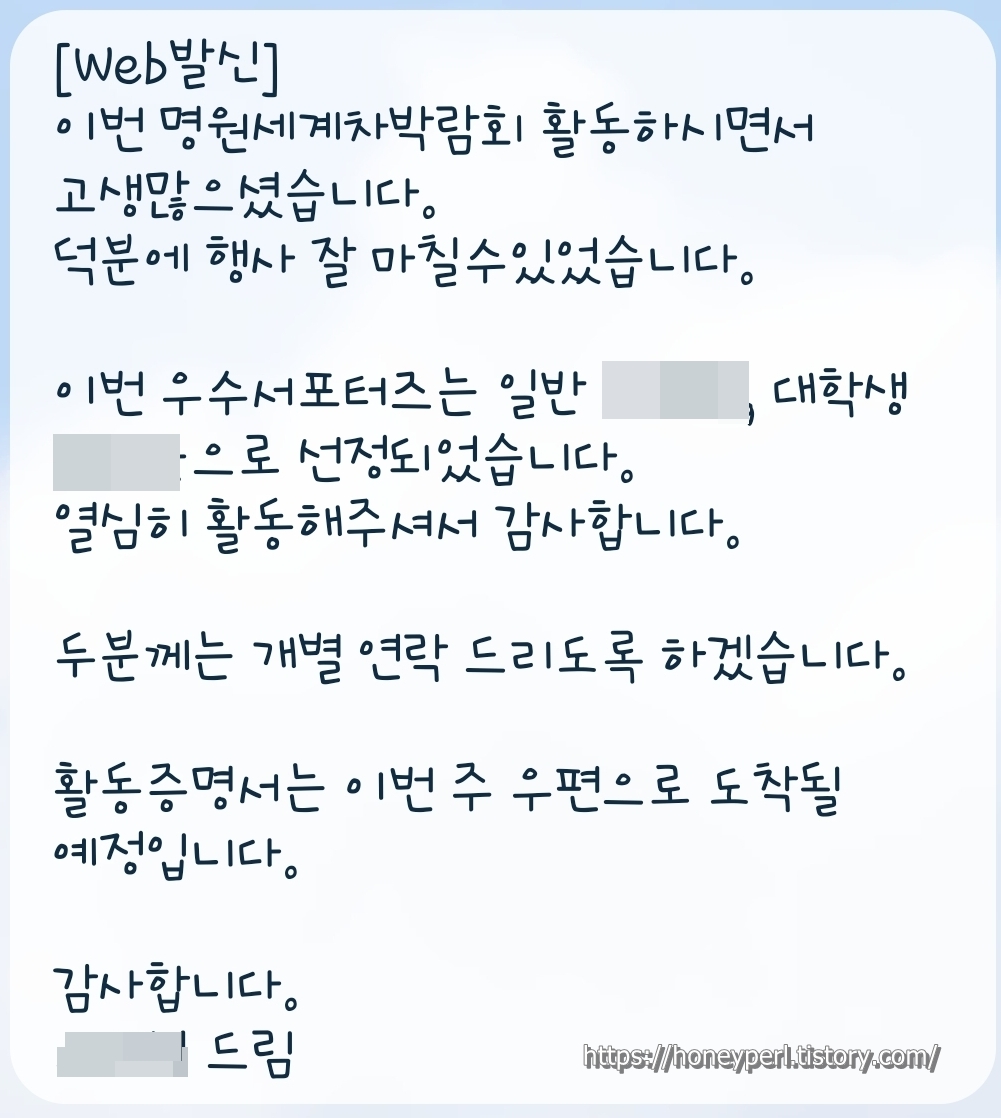 [Web발신]
이번 명원세계차박람회 활동하시면서
고생많으셨습니다.
덕분에 행사 잘 마칠수있었습니다.
이번 우수서포터즈는 일반 , 대학생
으로 선정되었습니다.
열심히 활동해주셔서 감사합니다.
두분께는 개별 연락 드리도록 하겠습니다.
활동증명서는 이번 주 우편으로 도착될
예정입니다.
감사합니다.
드림
https://honeyperl.tistory.com/